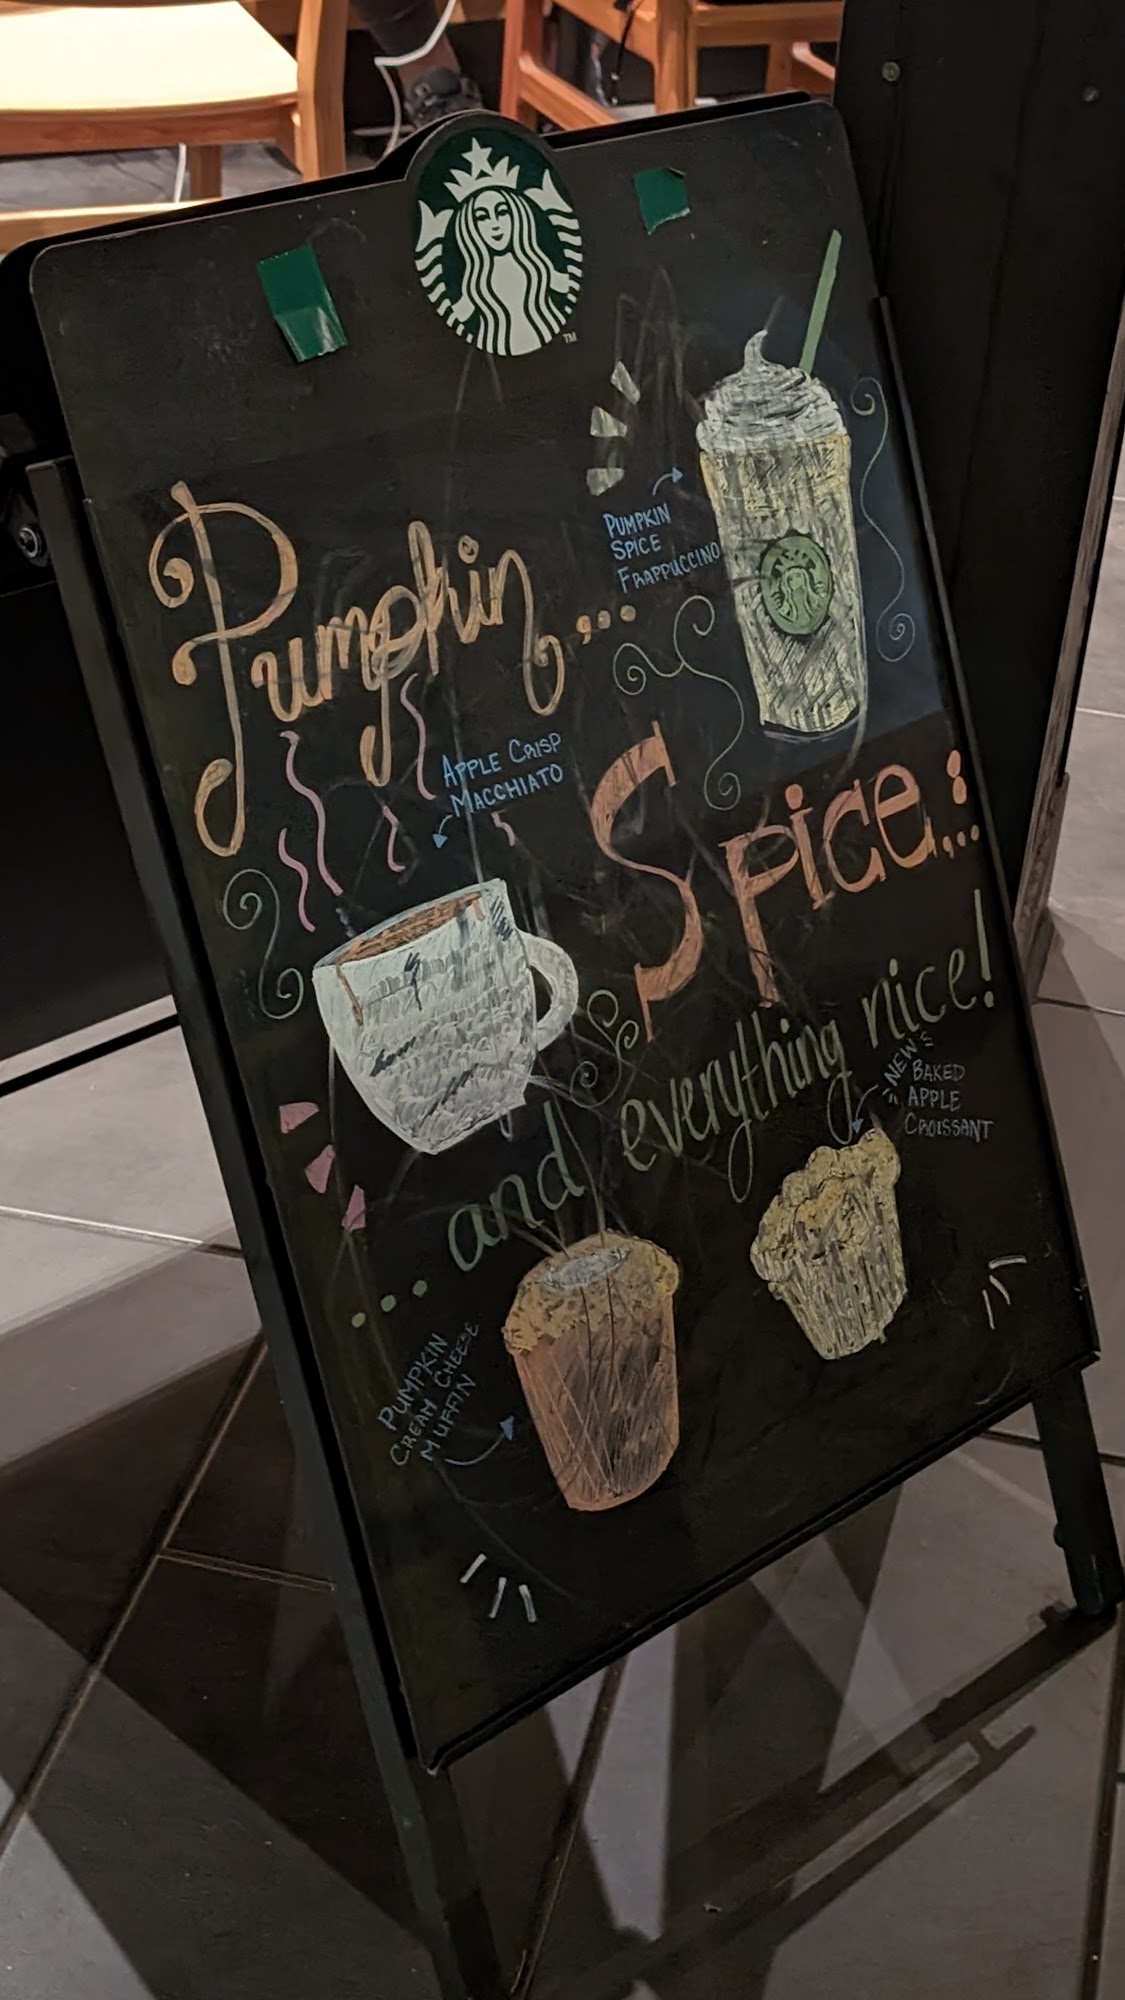 TM
Pumpkin....
PUMPKIN
SPICE
FRAPPUCCINO
APPLE CRISP
MACCHIATO
Spice...
... and everything nice!
NEW
BAKED
APPLE
CROISSANT
PUMPKIN
CREAM CHEESE
MUFFIN